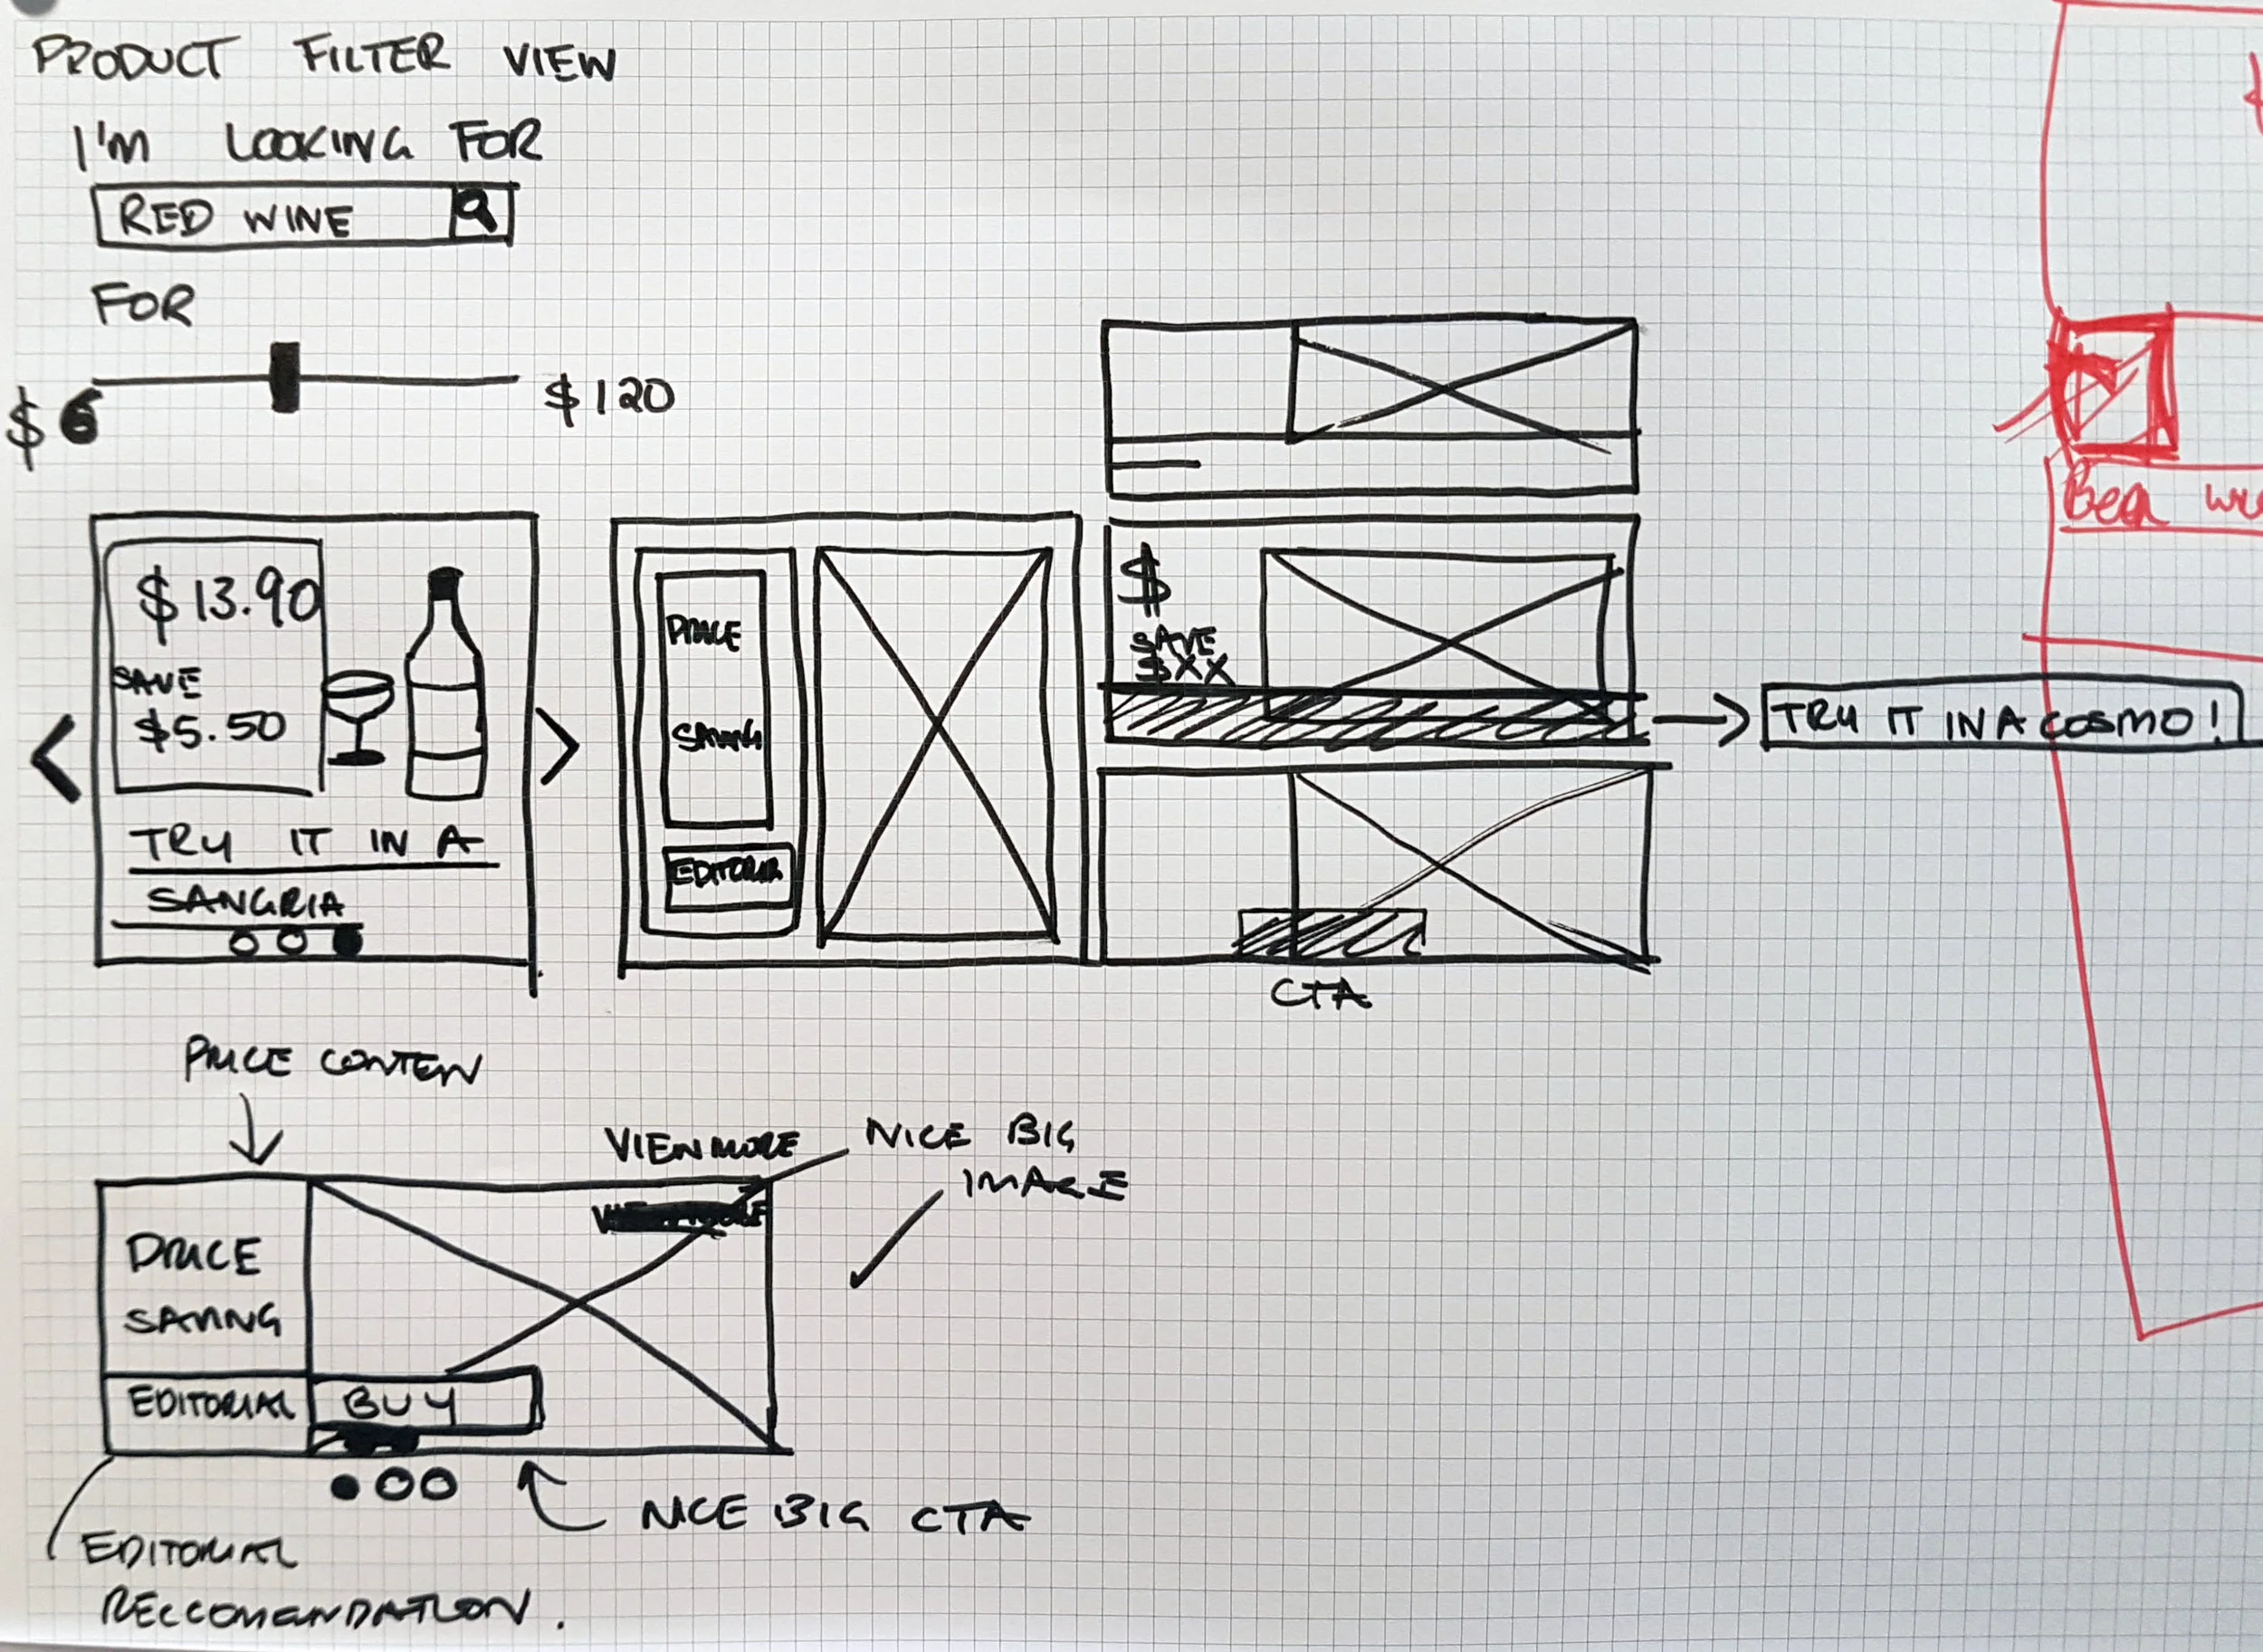 PRODUCT FILTER VIEW
I'M LOOKING FOR
RED WINE
FOR
$6
$120
$13.90
SAVE
$5.50
TRY IT IN A
SANGRIA
PRICE
SAVING
EDITORIAL
$
SAVE
$XX
TRY IT IN A COSMO!
CTA
PRICE CONTEN
VIEW MORE
NICE BIG
IMAGE
PRICE
SAVING
EDITORIAL
BUY
NICE BIG CTA
EDITORIAL
RECCOMENDATION.